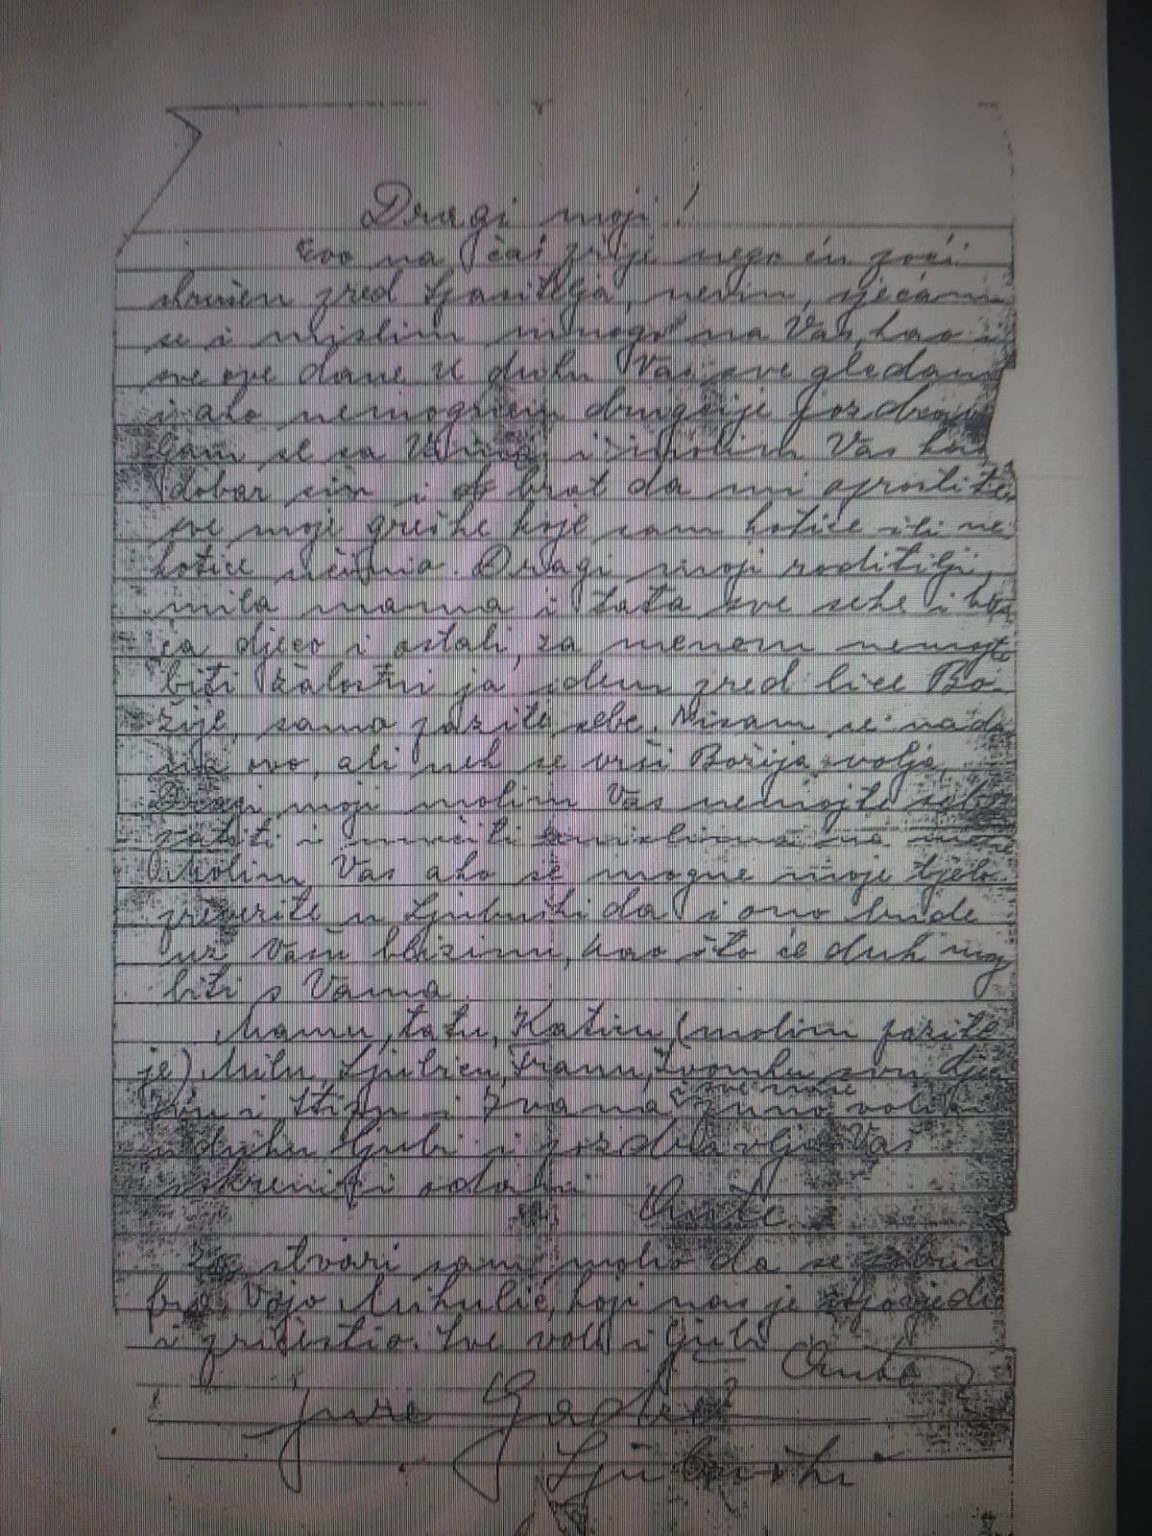 Dragi moji!
Evo na čas prije nego ću poći
skrušen pred Spasitelja, nevin, sjećam
se i mislim mnogo na Vas, kao i
sve ove dane u duhu Vas sve gledam
i ako nemogniem drugčije pozdrav
ljam se sa Vama, i molim Vas kao
dobar sin i brat da mi oprostite
sve moje greške koje sam hotice ili ne
hotice učinia. Dragi moji roditelji,
mila mama i tata sve seke i
ca djeco i ostali, za menom nemojte
biti žalostni ja idem pred lice Bo-
žije, samo pazite sebe. Nisam se nada
ovo, ali nek se vrši Božija volja.
Dragi moji molim Vas nemojte sebe
i mučiti
Molim Vas ako se mogne moje tjelo
prevezite u Ljubuški da i ono bude
uz Vašu blizinu, kao što će duh moj
biti s Vama.
Mamu, tatu, Katicu, (molim pazite
je) Milu Ljubicu, Franu, Zvonku svu
i Stipu i Ivana
u duhu ljubi i pozdravlja Vas
iskreni i odani
Ante
Za stvari sam molio da se pobrine
fra Vojo Mikulić, koji nas je ispovjedio
i pričestio. Sve voli i ljubi
Ante
Jure
Ljubuški